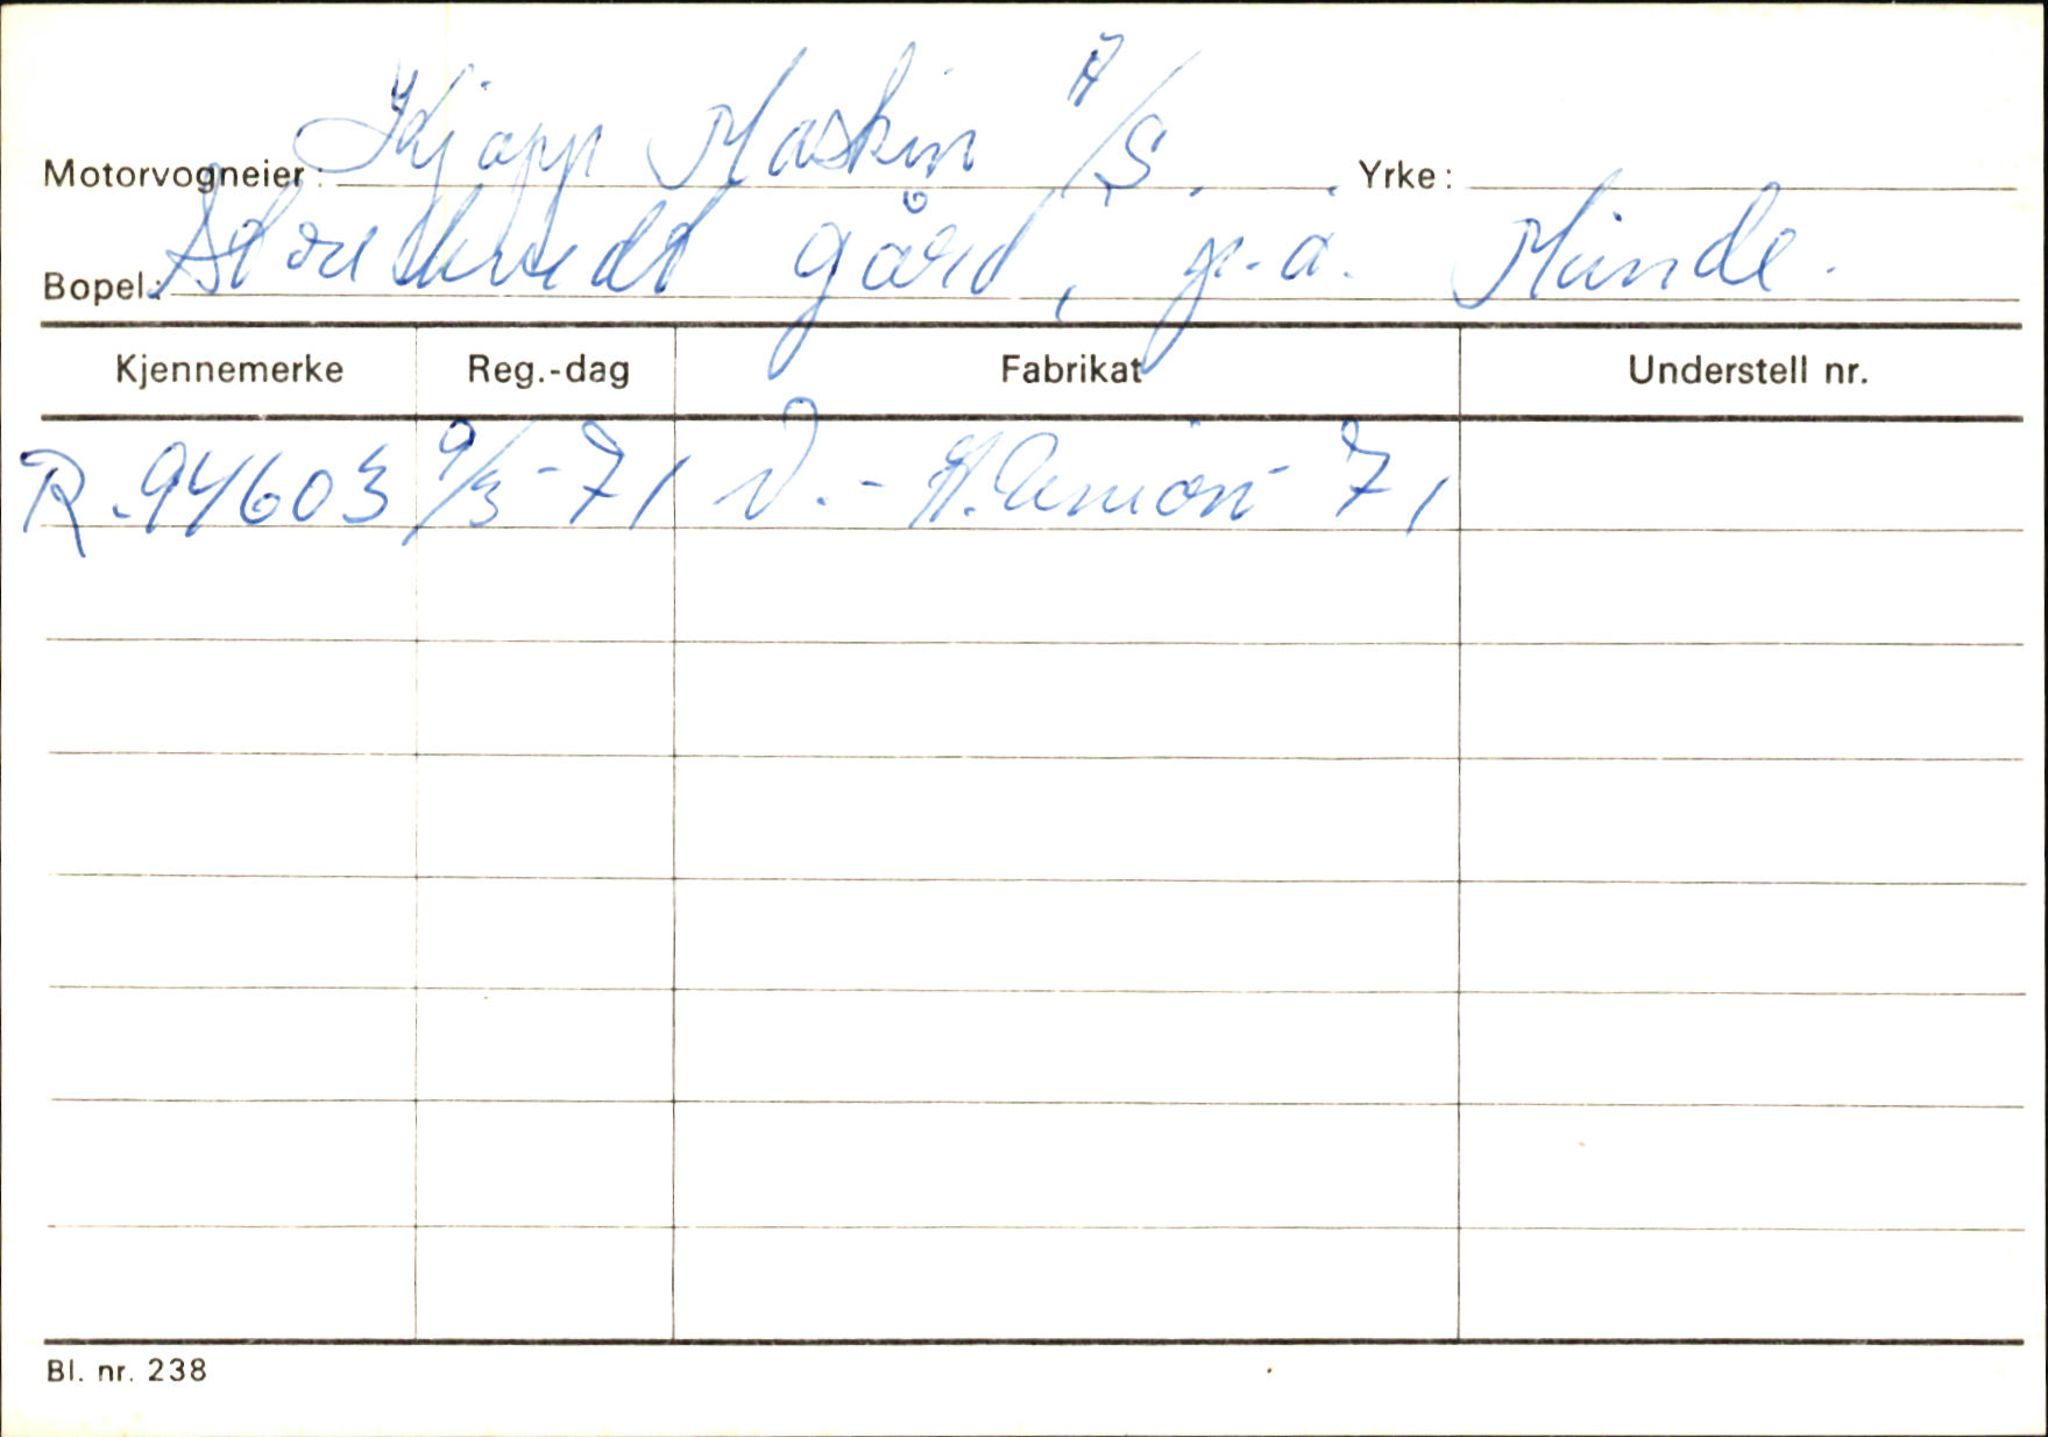 Motorvogneier: Kjapp Maskin A/S. Yrke:
Bopel: gård, p.a. Minde.
Kjennemerke Reg.-dag Fabrikat Understell nr.
R.94603 9/3-71 D.-H.Union 71
Bl. nr. 238